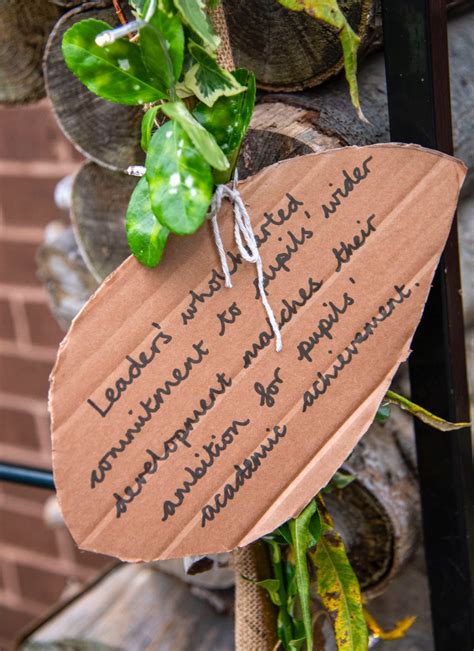 Leaders' wholehearted
commitment to pupils' wider
development matches their
ambition for pupils'
academic achievement.